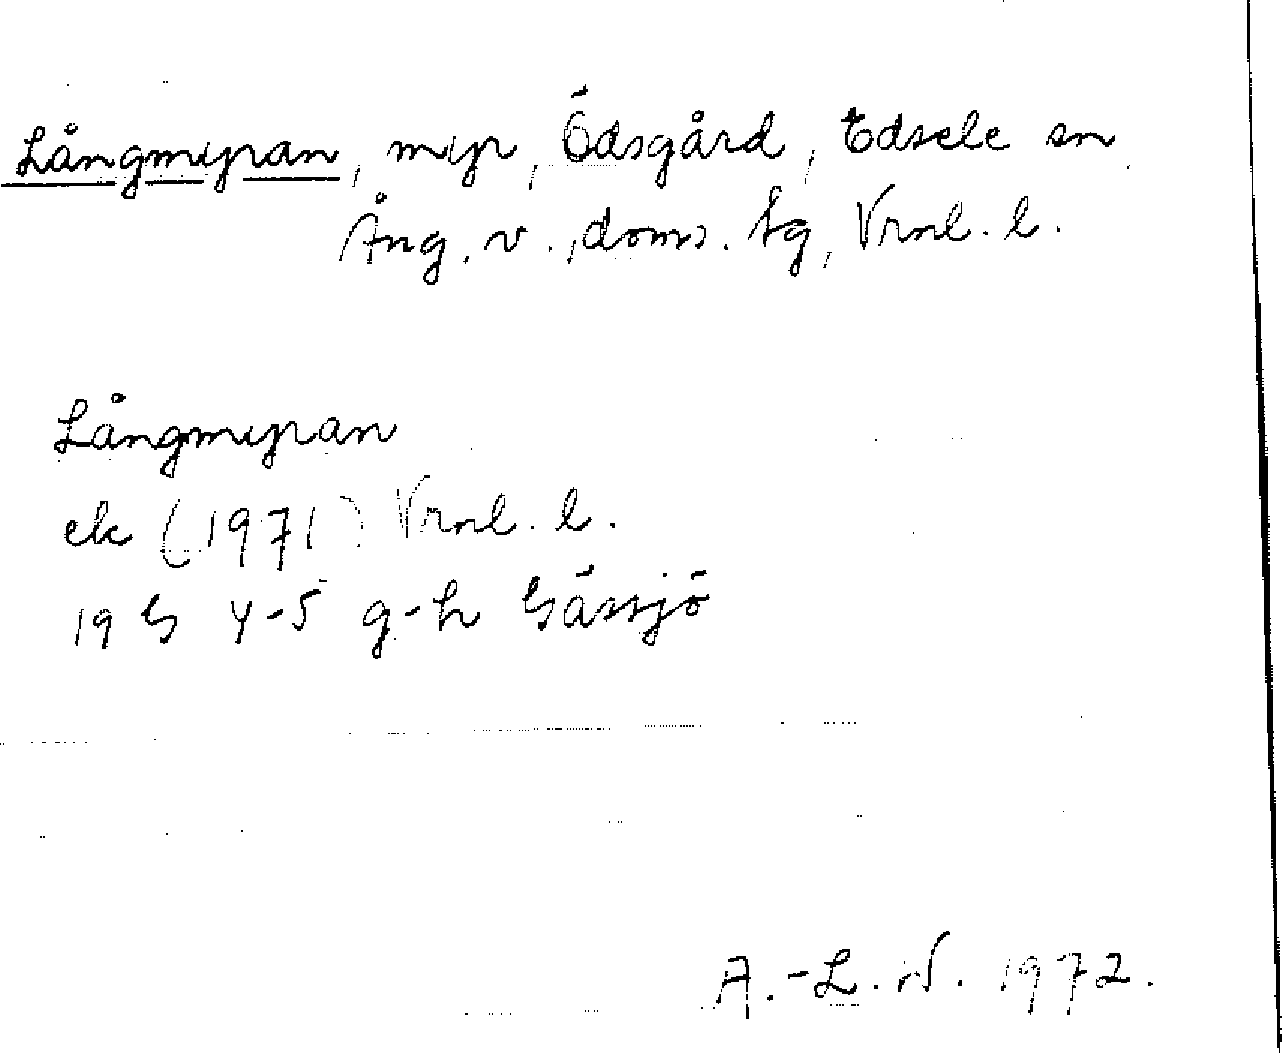 Långmyran, myr, Ödsgård, Edsele sn
Ång. v., doms. tg, Vrnl. l.
Långmyran
ek (1971) Vrnl. l.
19 G 4-5 g-h Gåssjö
A.-L. N. 1972.